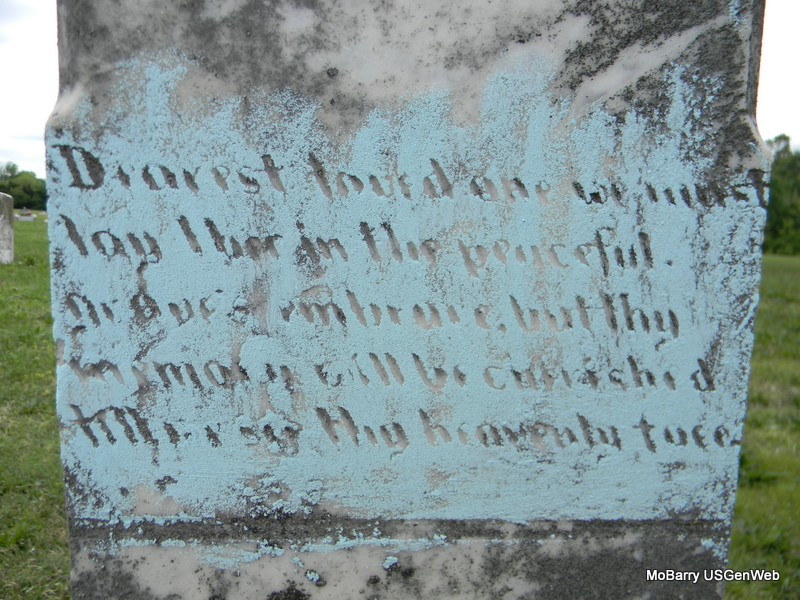 Dearest loved one we must
lay thee in the peaceful
grave's embrace, but thy
memory will be cherished
till we see thy heavenly face
MoBarry USGenWeb